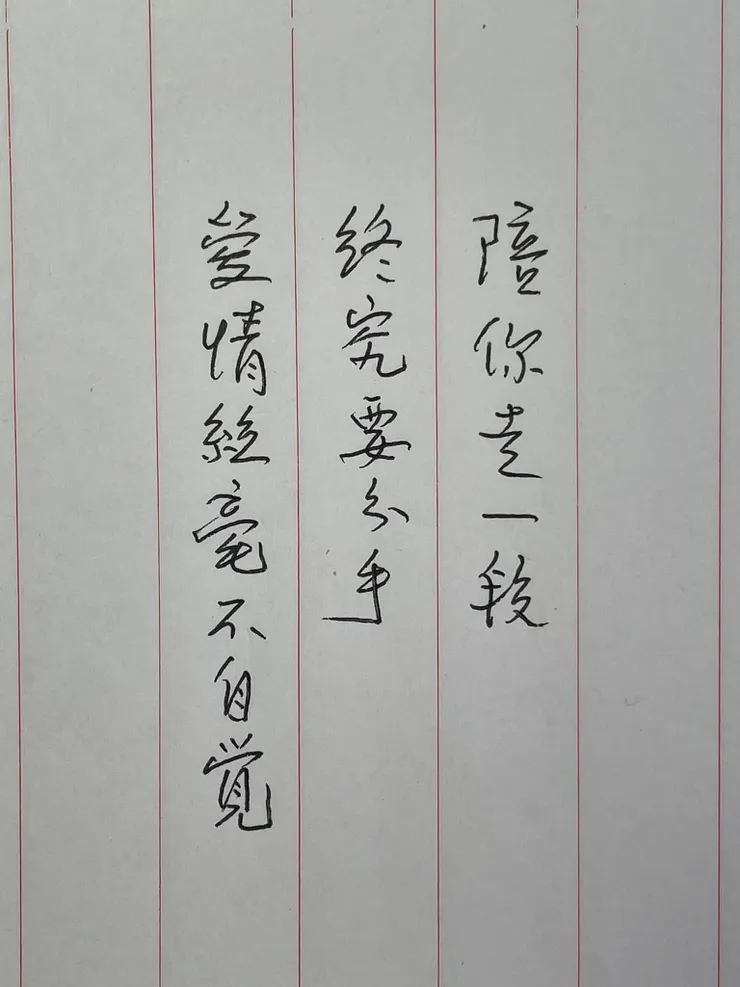 陪你走一段
終究要分手
愛情絲毫不自覺